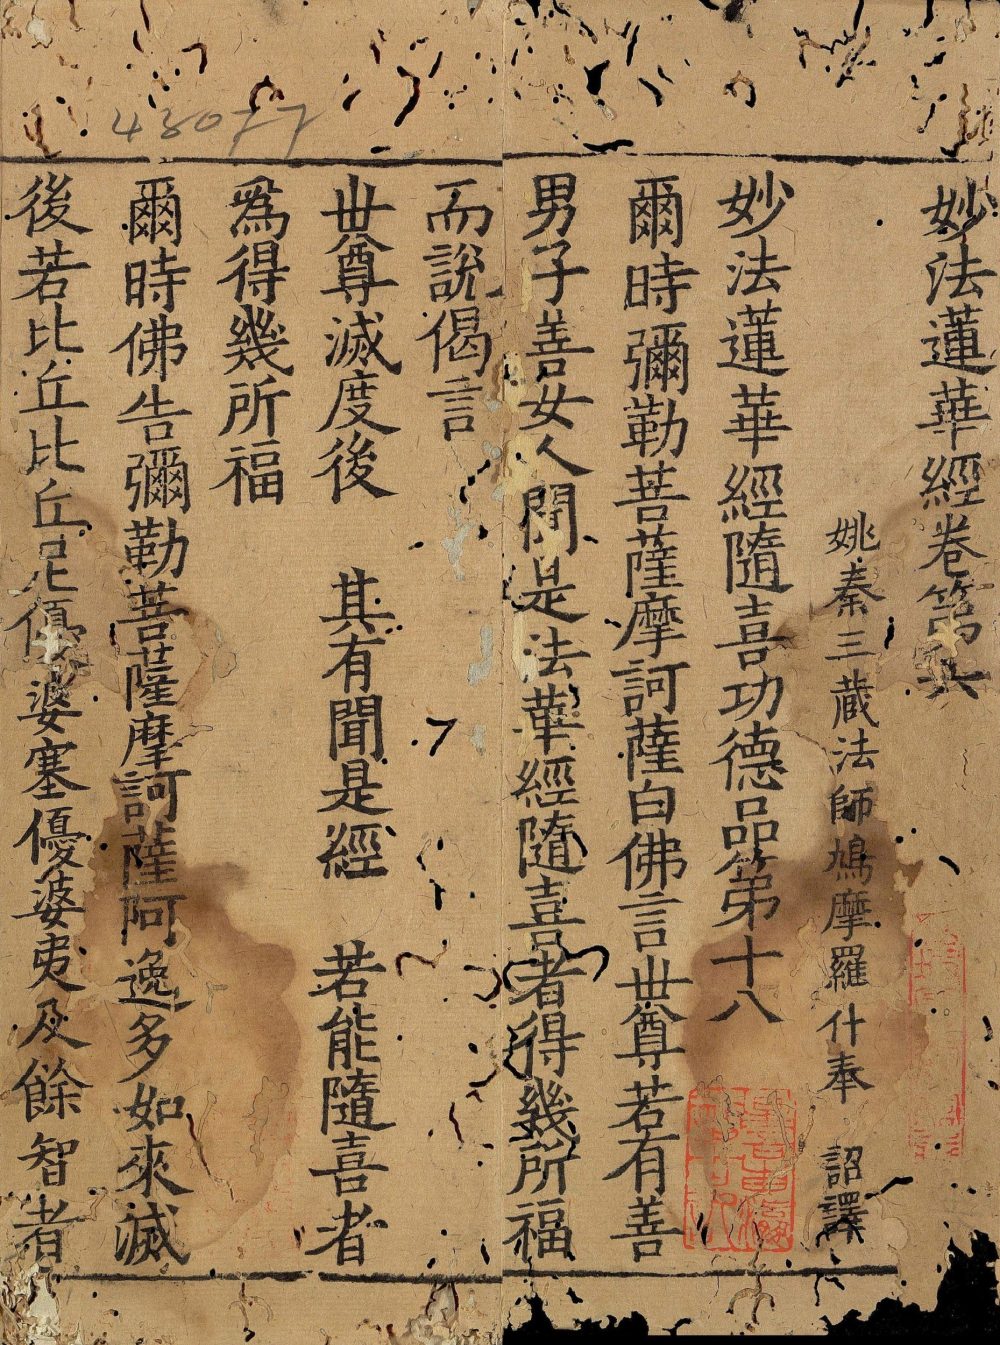 妙法蓮華經卷第六
姚秦三藏法師鳩摩羅什奉 詔譯
妙法蓮華經隨喜功德品第十八
爾時彌勒菩薩摩訶薩白佛言世尊若有善
男子善女人聞是法華經隨喜者得幾所福
而說偈言
世尊滅度後 其有聞是經 若能隨喜者
爲得幾所福
爾時佛告彌勒菩薩摩訶薩阿逸多如來滅
後若比丘比丘尼優婆塞優婆夷及餘智者